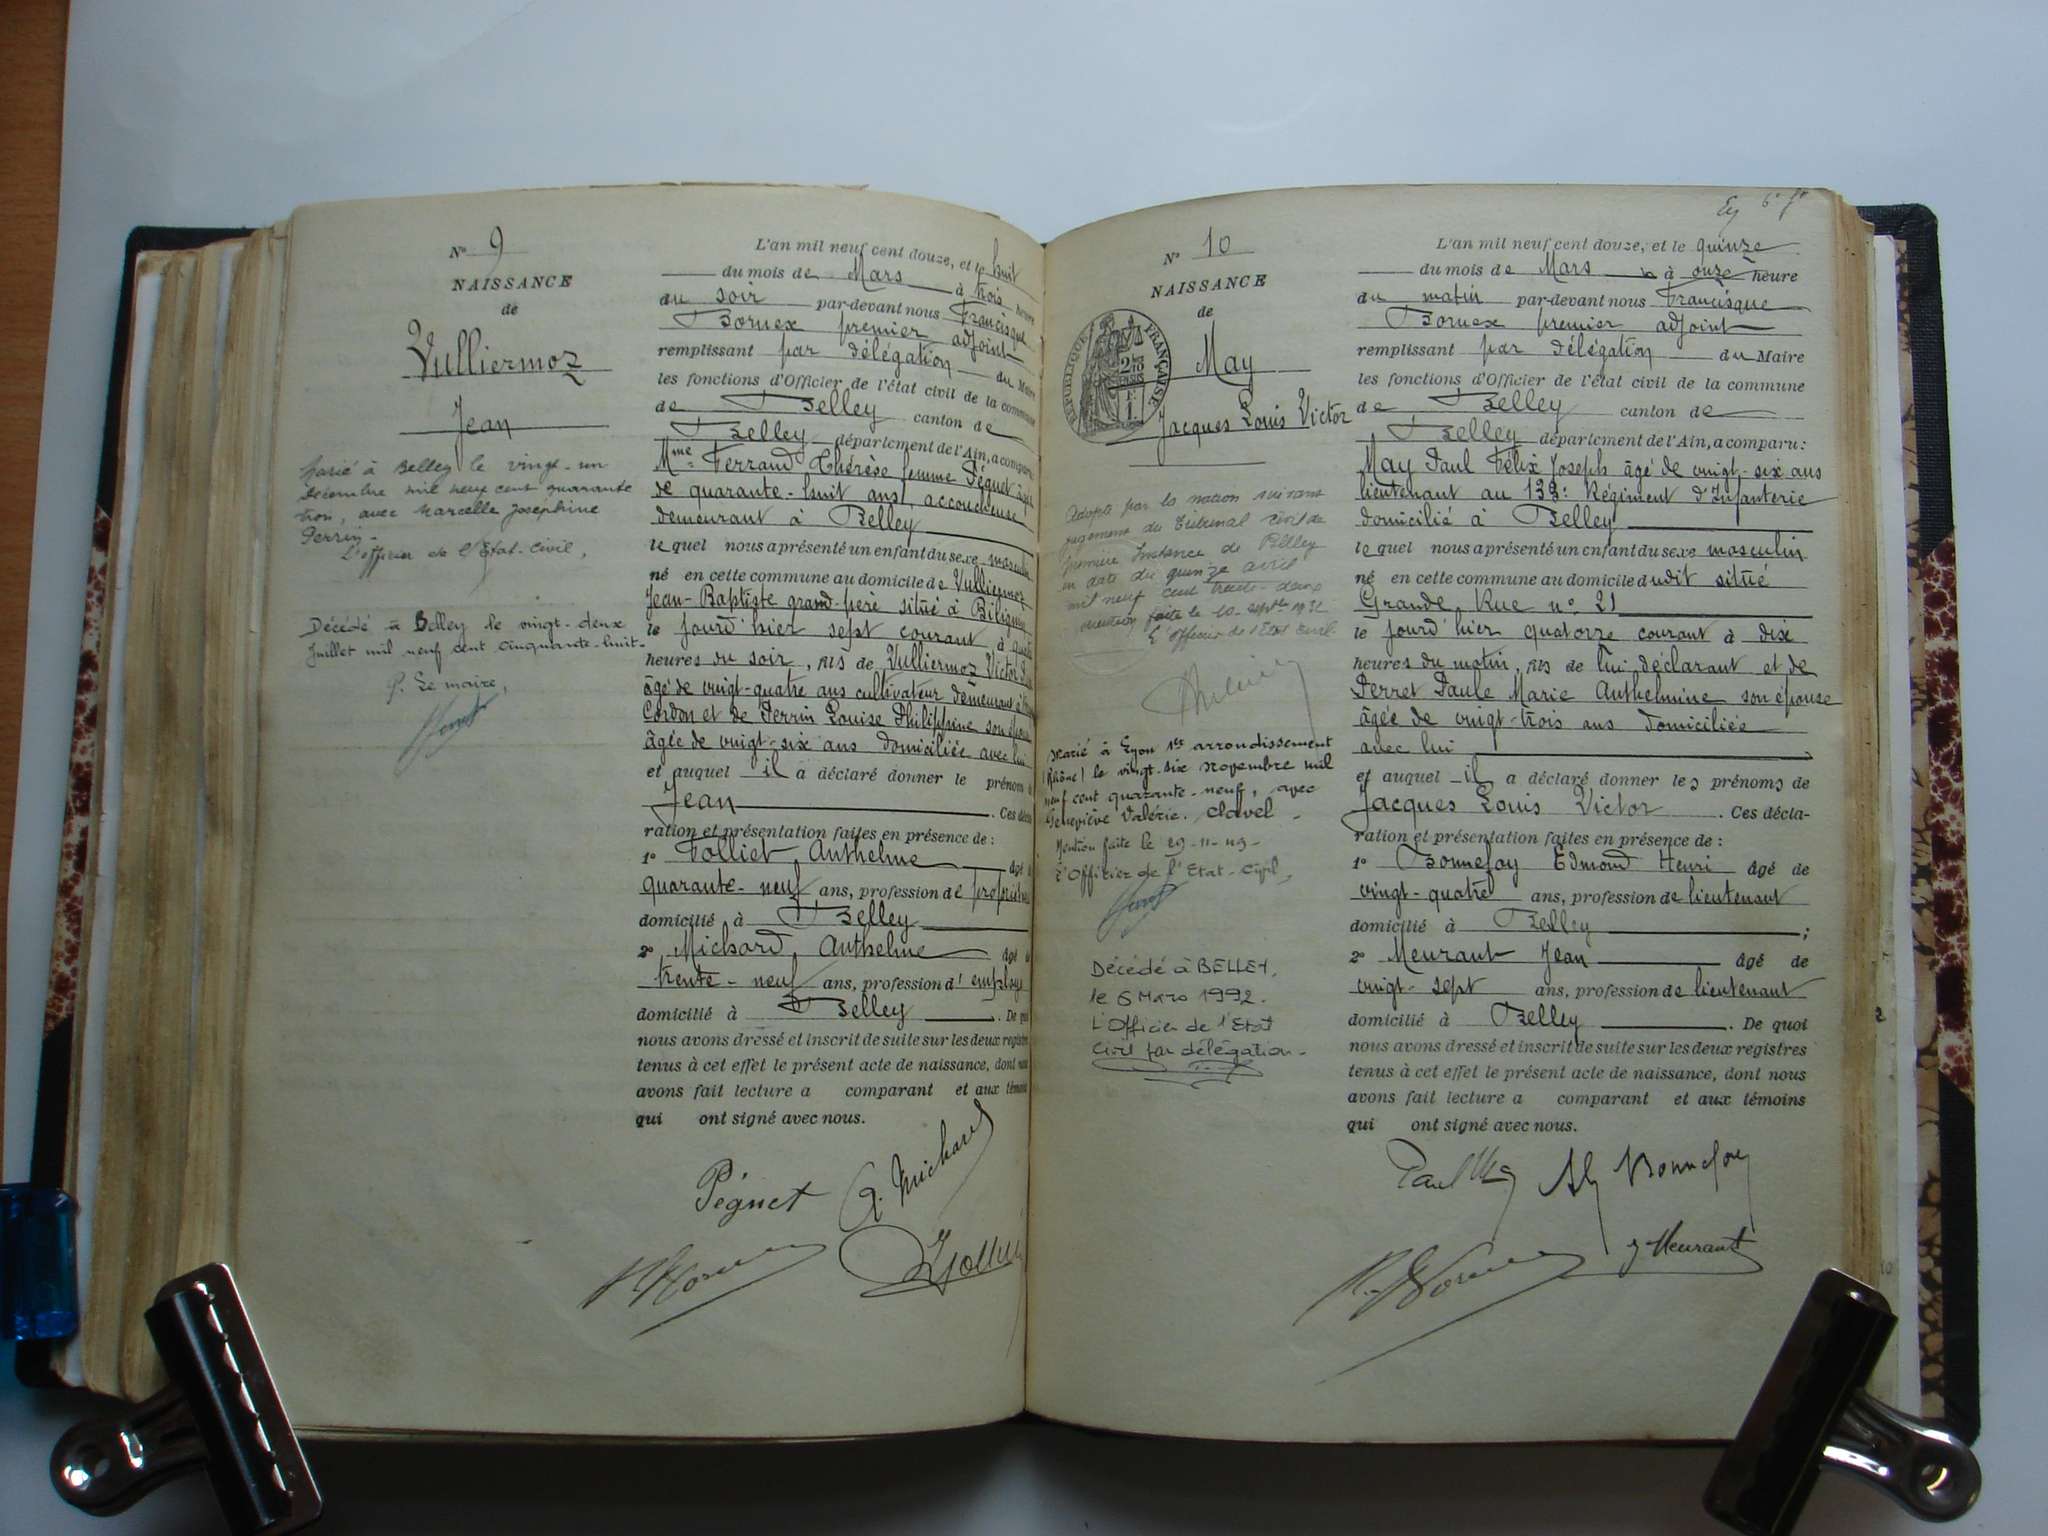 N° 9
NAISSANCE
de
Vulliermoz
Jean
Marié à Belley le vingt-un
décembre mil neuf cent quarante
trois, avec Marcelle Joséphine
Perrin -
L'officier de l'Etat-Civil,
Décédé à Belley le vingt-deux
Juillet mil neuf cent cinquante-huit-
P. Le maire,
L'an mil neuf cent douze, et le huit
du mois de Mars à trois heure
du soir par-devant nous Francisque
Bornex premier adjoint
remplissant par délégation du Maire
les fonctions d'Officier de l'état civil de la commune
de Belley canton de
Belley département de l'Ain, a comparu
Mme Ferrand Thérèse femme Péguet âgée
de quarante-huit ans, accoucheuse
demeurant à Belley
lequel nous a présenté un enfant du sexe masculin
né en cette commune au domicile de Vulliermoz
Jean-Baptiste grand-père situé à Billignin
le jourd'hier sept courant à quatre
heures du soir, fils de Vulliermoz Victor
âgé de vingt-quatre ans cultivateur demeurant à
Cordon et de Perrin Louise Philippine son épouse
âgée de vingt-six ans domiciliée avec lui
et auquel il a déclaré donner le prénom
Jean Ces décla
ration et présentation faites en présence de :
1° Folliet Anthelme âgé
quarante-neuf ans, profession de propriétaire
domicilié à Belley
2° Michard Anthelme âgé
trente-neuf ans, profession d'employé
domicilié à Belley . De quoi
nous avons dressé et inscrit de suite sur les deux registres
tenus à cet effet le présent acte de naissance, dont nous
avons fait lecture a comparant et aux témoins
qui ont signé avec nous.
Péguet A. Michard
N° 10
NAISSANCE
de
RÉPUBLIQUE FRANÇAISE
May
Jacques Louis Victor
Adopté par la nation suivant
jugement du Tribunal Civil de
première Instance de Belley
en date du quinze avril
mil neuf cent trente-deux
mention faite le 10 septbre 1932
L'officier de l'Etat Civil.
Marié à Lyon 1er arrondissement
(Rhône) le vingt-six novembre mil
neuf cent quarante-neuf, avec
Geneviève Valérie. Clavel -
Mention faite le 29-11-49-
L'Officier de l'Etat-Civil,
Décédé à BELLEY,
le 6 Mars 1992.
L'Officier de l'Etat
Civil par délégation -
6e
L'an mil neuf cent douze, et le quinze
du mois de Mars à onze heure
du matin par-devant nous Francisque
Bornex premier adjoint
remplissant par délégation du Maire
les fonctions d'Officier de l'état civil de la commune
de Belley canton de
Belley département de l'Ain, a comparu :
May Paul Félix Joseph âgé de vingt-six ans
lieutenant au 133e Régiment d'Infanterie
domicilié à Belley
lequel nous a présenté un enfant du sexe masculin
né en cette commune au domicile dudit situé
Grande Rue n° 21
le jourd'hier quatorze courant à dix
heures du matin, fils de lui déclarant et de
Perret Paule Marie Anthelmine son épouse
âgée de vingt-trois ans domiciliée
avec lui
et auquel il a déclaré donner les prénoms de
Jacques Louis Victor . Ces décla-
ration et présentation faites en présence de :
1° Bonnefoy Edmond Henri âgé de
vingt-quatre ans, profession de lieutenant
domicilié à Belley ;
2° Meurant Jean âgé de
vingt-sept ans, profession de lieutenant
domicilié à Belley . De quoi
nous avons dressé et inscrit de suite sur les deux registres
tenus à cet effet le présent acte de naissance, dont nous
avons fait lecture a comparant et aux témoins
qui ont signé avec nous.
Paul May Bonnefoy
J Meurant